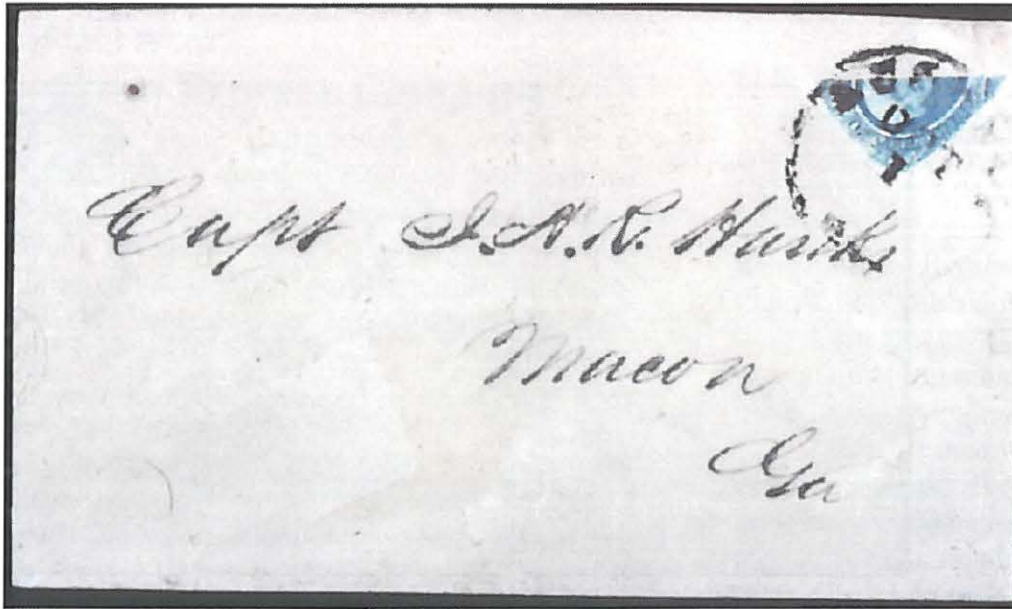 Capt I. A. R. Hanks
Macon
Ga